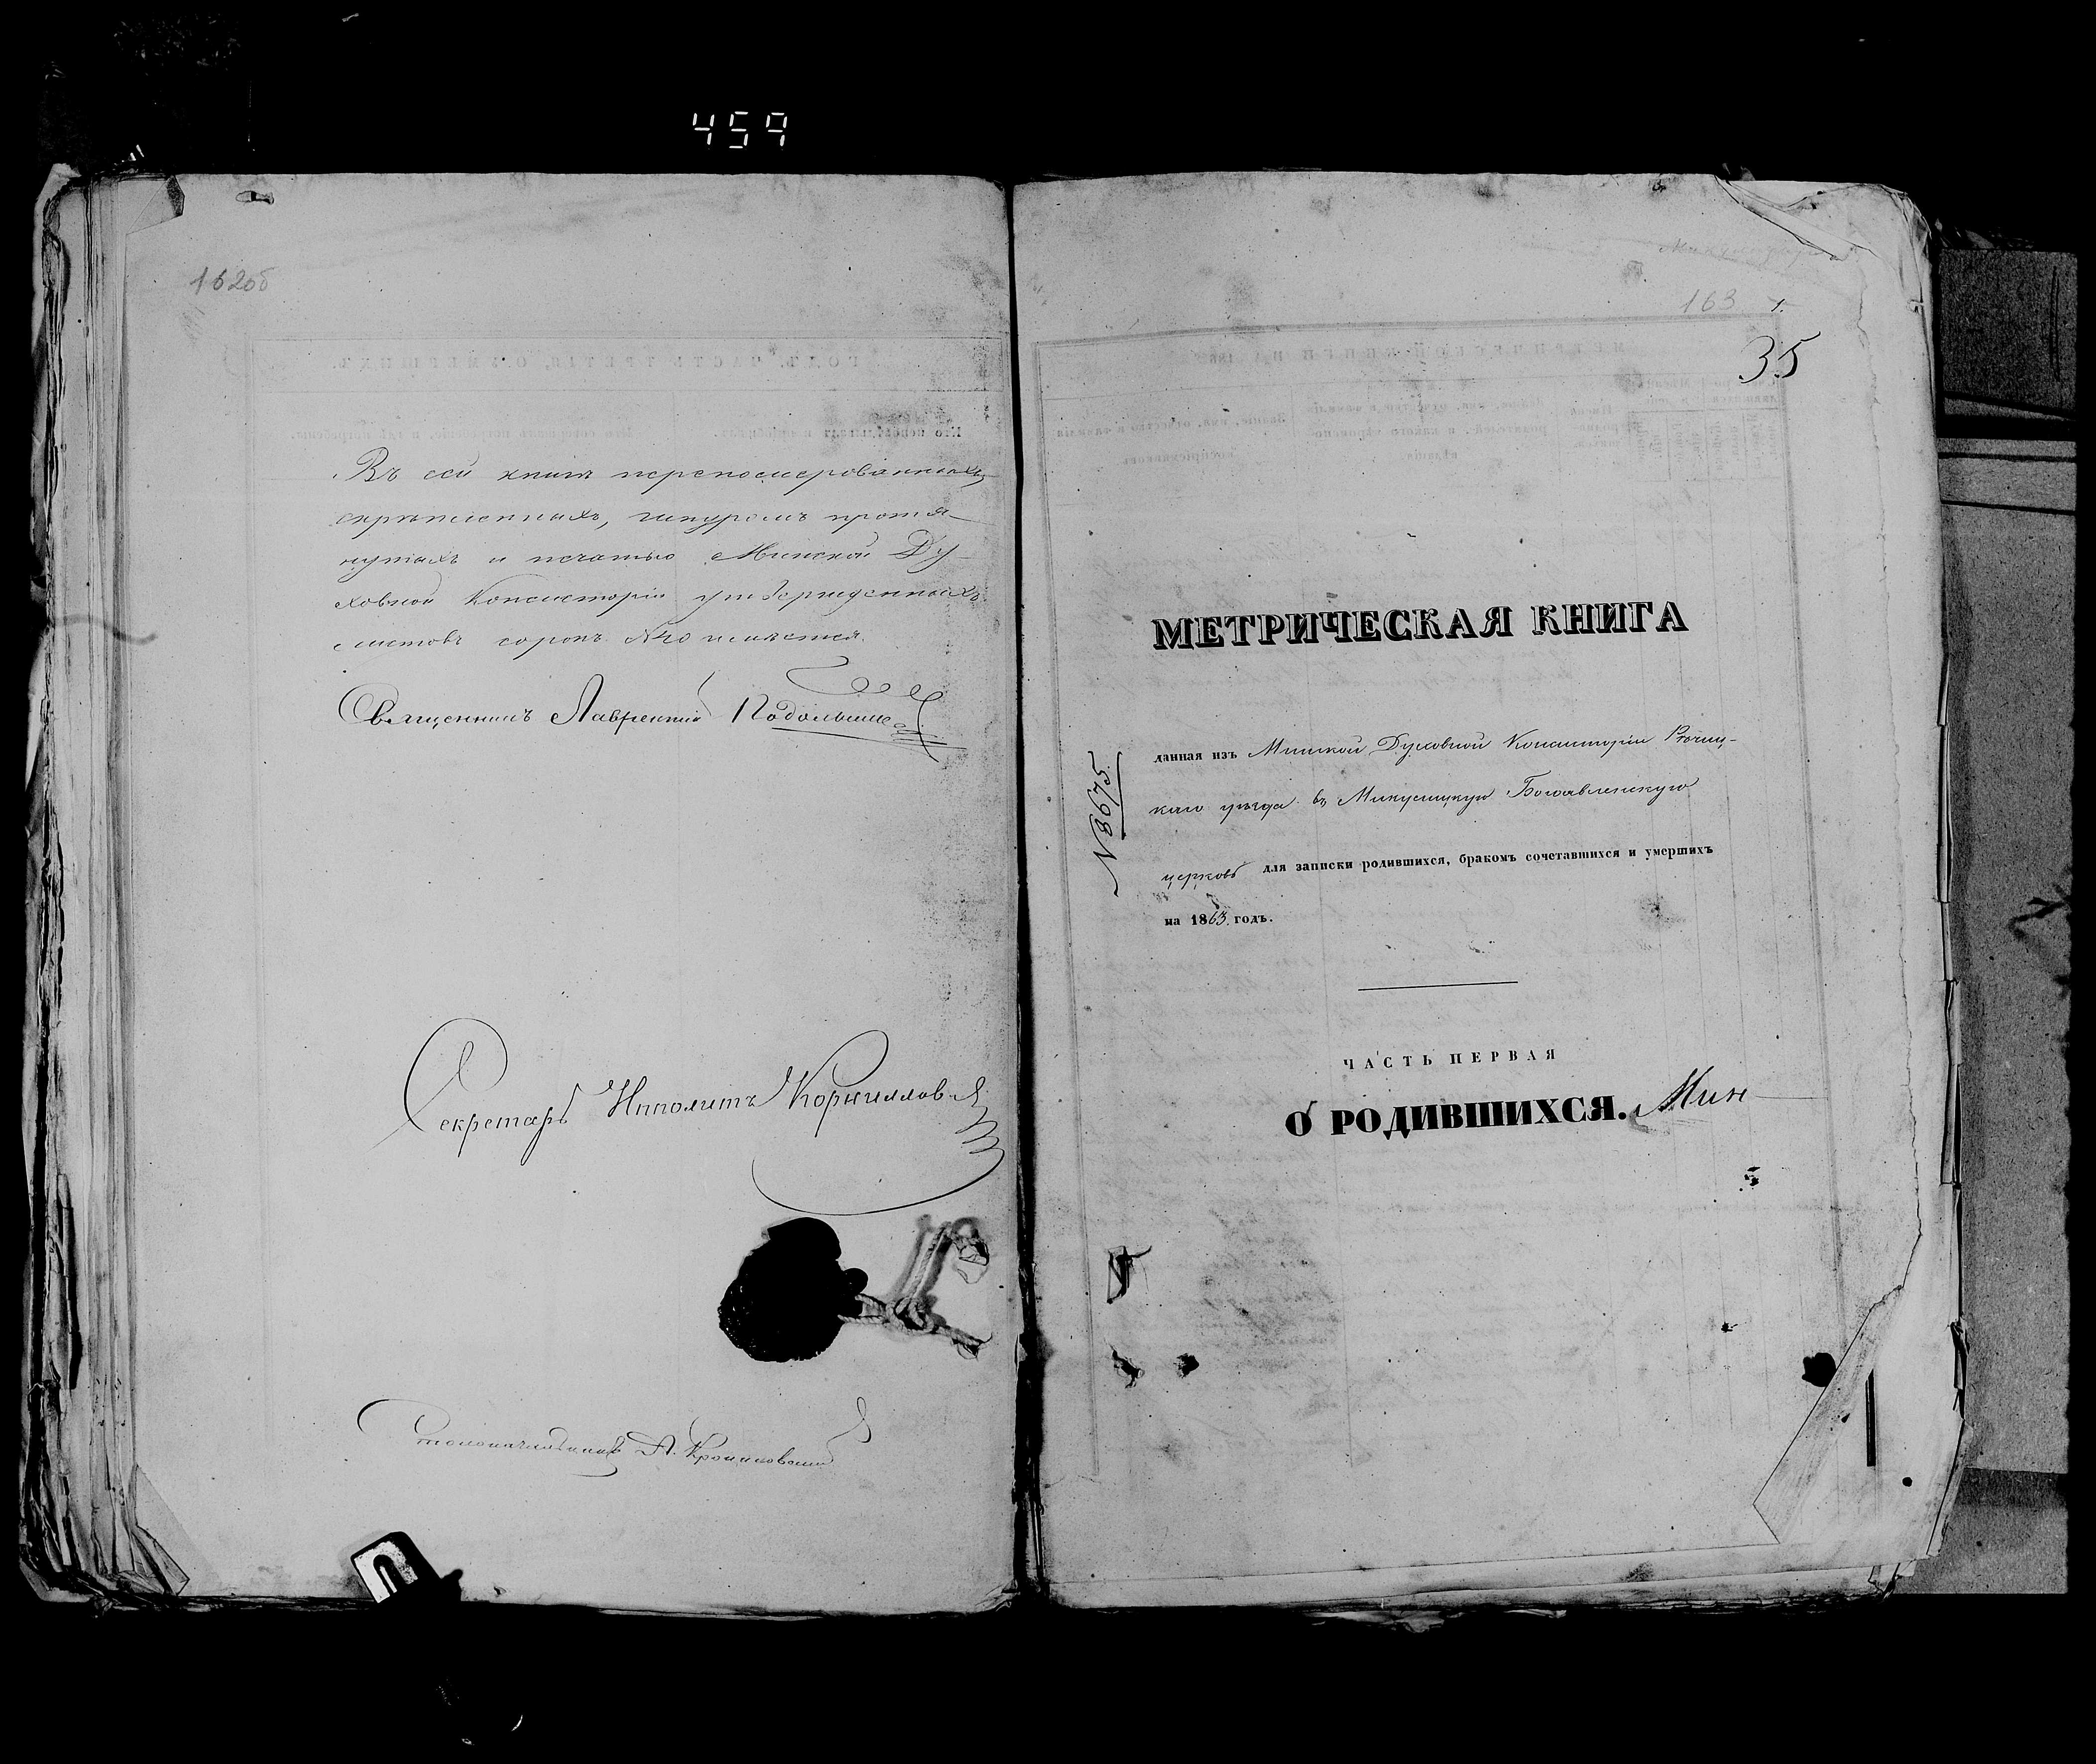 459
162об
Въ сей книгѣ перенумерованныхъ,
скрѣпленныхъ, шнуромъ протя-
нутыхъ и печатью Минской Ду-
ховной Консисторіи утвержденныхъ
листовъ сорокъ №40 имѣется.
Священникъ Лаврентій
Секретарь Ипполитъ Корниловъ
Столоначальникъ А.
163 1.
35
МЕТРИЧЕСКАЯ КНИГА
№8675.
данная изъ Минской Духовной Консисторіи Рѣчиц-
каго уѣзда въ Микулицкую Богоявленскую
церковь для записки родившихся, бракомъ сочетавшихся и умершихъ
на 1863 годъ.
ЧАСТЬ ПЕРВАЯ
О РОДИВШИХСЯ. Мин